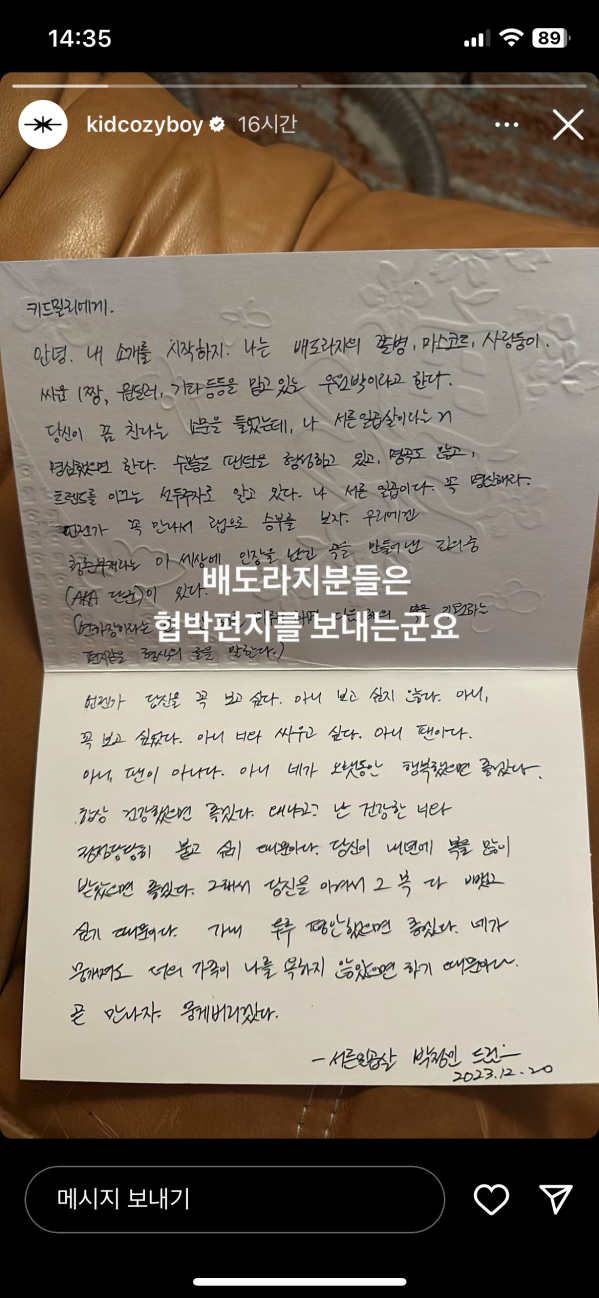 14:35
89
kidcozyboy 16시간
키드밀리에게.
안녕. 내 소개를 시작하지. 나는 배도라지의 돌병, 마스코트, 사랑둥이.
싸움 1짱, 원딜러, 기타등등을 맡고 있는 우원박이라고 한다.
당신이 꿈 찬다는 소문을 들었는데, 나 서른일곱살이라는 거
명심했으면 한다. 수많은 팬단을 형성하고 있고, 명곡도 많고,
트렌드를 이끄는 선두주자로 알고 있다. 나 서른 일곱이다. 꼭 명심해라.
언젠가 꼭 만나서 랩으로 승부를 보자. 우리에겐
이 세상에 인장을 남긴 곡을 만들어낸
(AKA 단군)이 있다.
배도라지분들은
협박편지를 보내는군요
편지같은 형식의 글을 말한다.)
언젠가 당신을 꼭 보고 싶다. 아니 보고 싶지 않다. 아니,
꼭 보고 싶었다. 아니 너와 싸우고 싶다. 아니 팬이다.
아니, 팬이 아니다. 아니 네가 오랫동안 행복했으면 좋겠다.
항상 건강했으면 좋겠다. 왜냐고? 난 건강한 너와
정정당당히 붙고 싶기 때문이다. 당신이 내년에 복을 많이
받았으면 좋겠다. 그래서 당신을 이겨서 그 복 다 뺏고
싶기 때문이다. 가내 두루 평안했으면 좋겠다. 네가
뭉개져도 너의 가족이 나를 욕하지 않았으면 하기 때문이다.
곧 만나자. 뭉게버리겠다.
- 서른일곱살 박정민 드림
2023.12.20
메시지 보내기